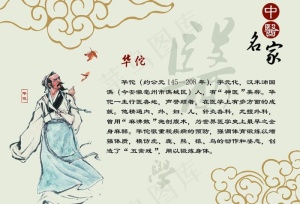 中醫名家
华佗
华佗（约公元145—208年），字元化，汉末沛国
谯（今安徽亳州市谯城区）人，有“神医”美称。华
佗一生行医各地，声誉颇著，在医学上有多方面的成
就。他精通内、外、妇、儿、针灸各科，尤擅外科，
曾用“麻沸散”先剖腹术，为世界医学史上最早之全
身麻醉。华佗很重视疾病的预防，强调体育锻炼以增
强体质，模仿虎、鹿、熊、猿、鸟的动作和姿态，创
造了“五禽戏”，用以锻炼身体。
医
华佗